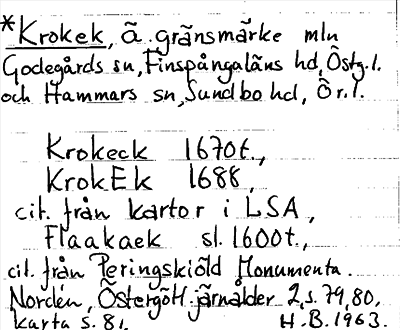 *Krokek, ä. gränsmärke mln
Godegårds sn, Finspångaläns hd, Östg.l.
och Hammars sn, Sundbo hd, Ör.l.
Krokeck 1670t.,
KrokEk 1688,
cit. från kartor i LSA,
Flaakaek sl. 1600t.,
cit. från Peringskiöld Monumenta.
Nordén, Östergötl. järnålder 2, s. 79, 80,
karta s. 81. H.B. 1963.